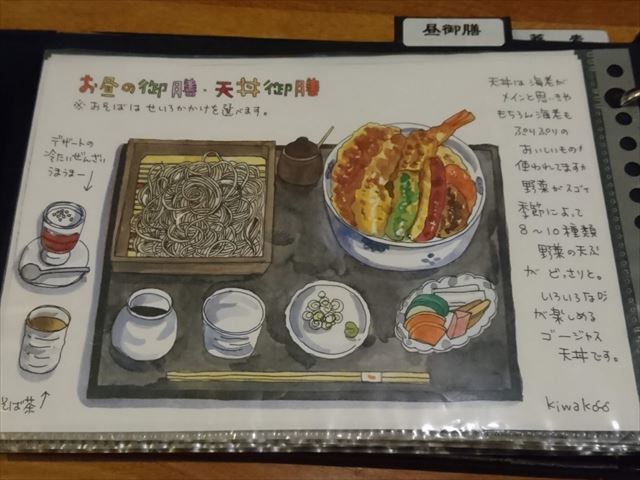 昼御膳
蕎麦
お昼の御膳・天丼御膳
※おそばはせいろかかけを選べます。
デザートの
冷たいぜんざい
うまうまー
そば茶
天丼は海老が
メインと思いきや
もちろん海老も
ぷりぷりの
おいしいもの
使われてますが
野菜がスゴイ
季節によって
8〜10種類
野菜の天ぷら
がどっさりと。
いろいろな味
が楽しめる
ゴージャス
天丼です。
kiwakoo